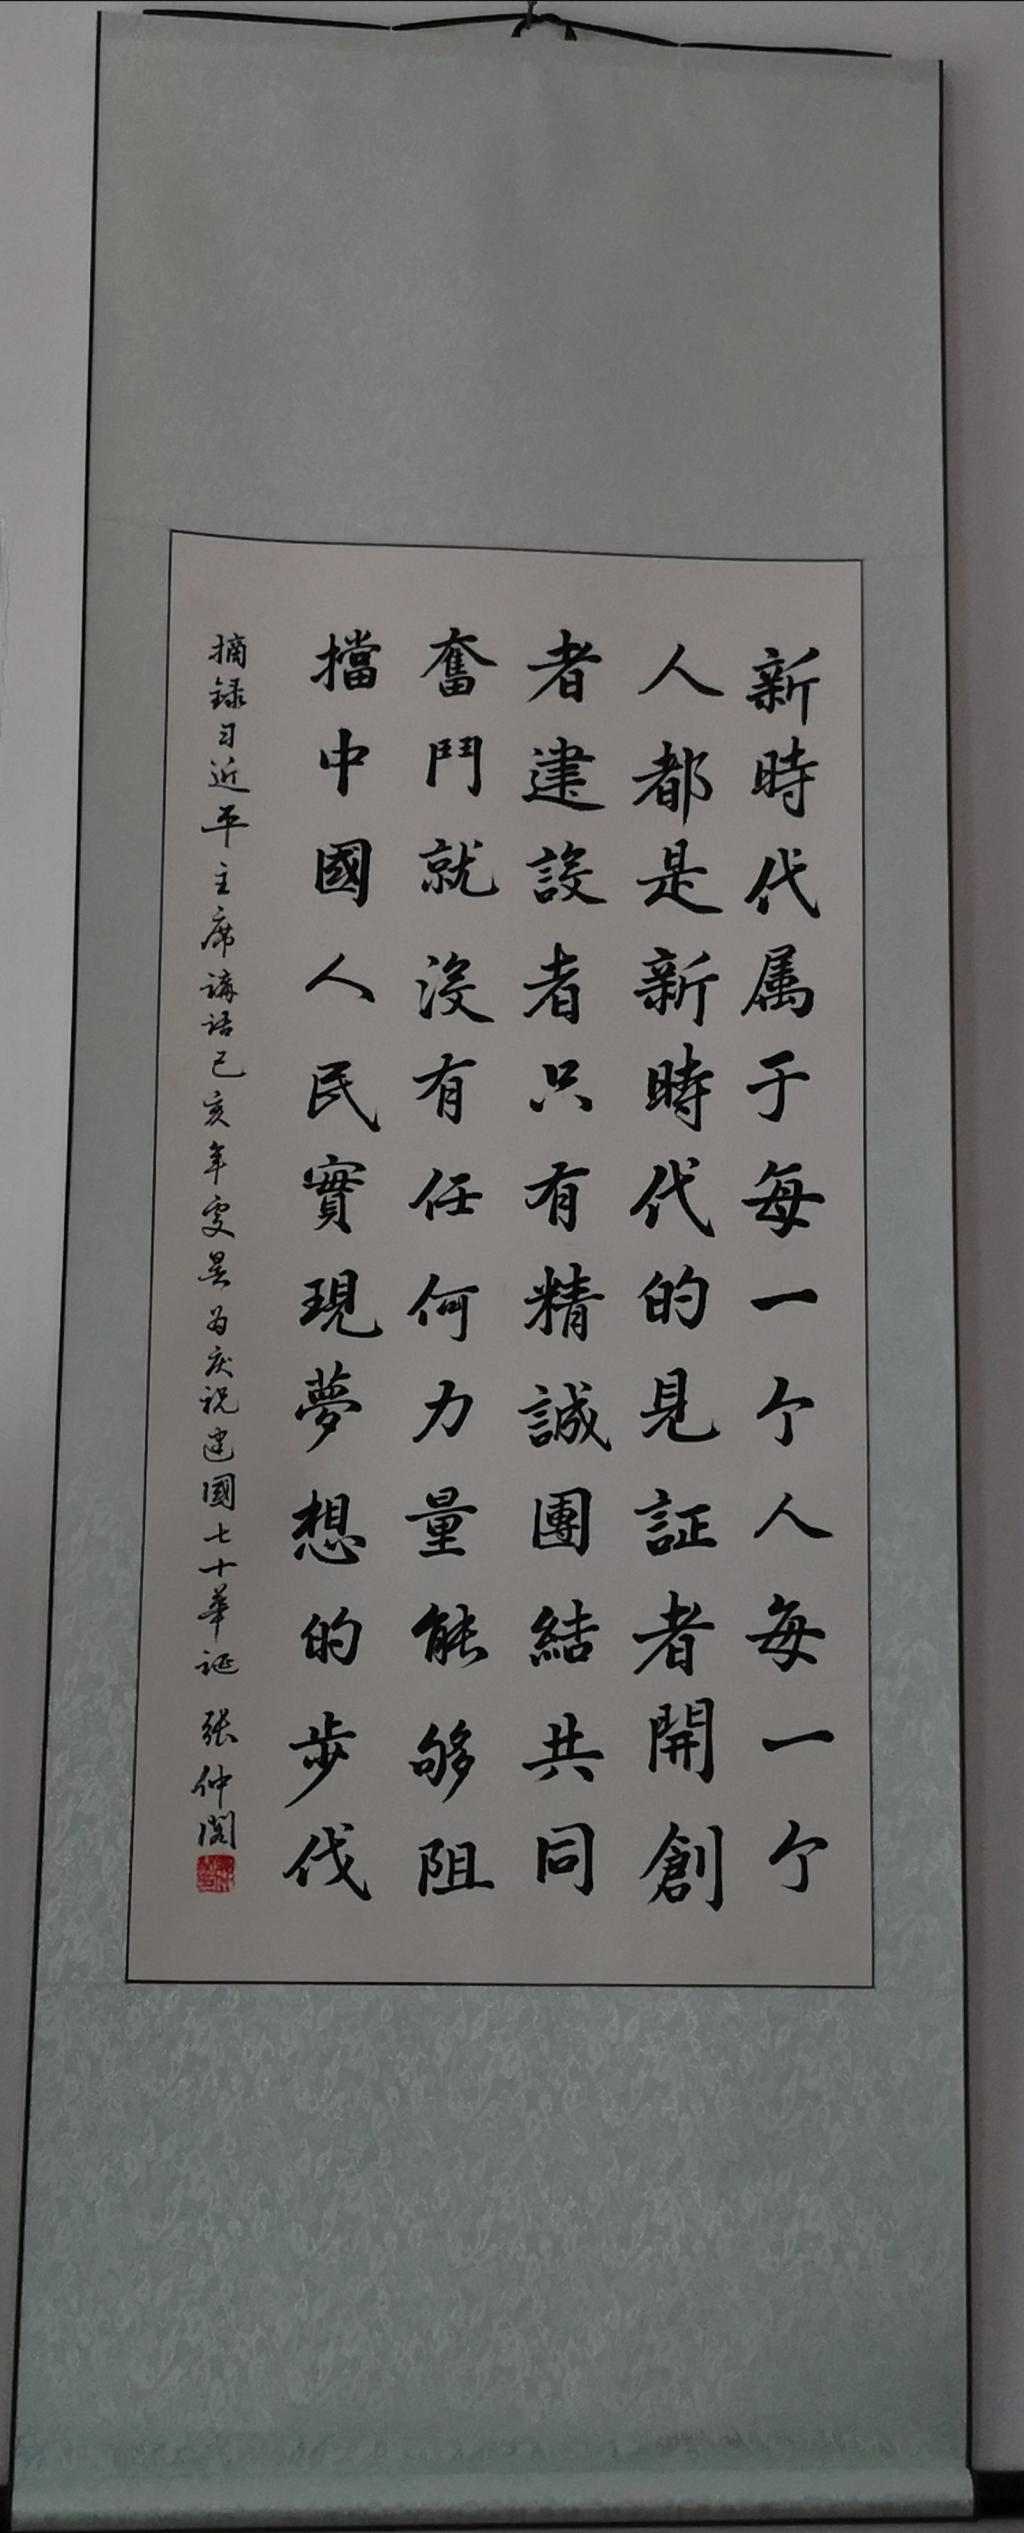 新時代属于每一个人每一个
人都是新時代的見証者開創
者建設者只有精誠團結共同
奮鬥就没有任何力量能够阻
擋中國人民實現夢想的步伐
摘録习近平主席講話己亥年 为庆祝建國七十華诞 张仲閣